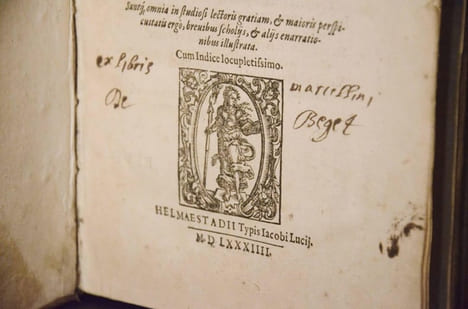 Sanctij, omnia in studiosi lectoris gratiam, & maioris perspi-
cuitatis ergò, breuibus scholijs, & alijs enarratio-
nibus illustrata.
Cum Indice locupletissimo.
ex libris marcellini
De Beget
HELMAESTADII Typis Iacobi Lucij.
M D LXXXIIII.